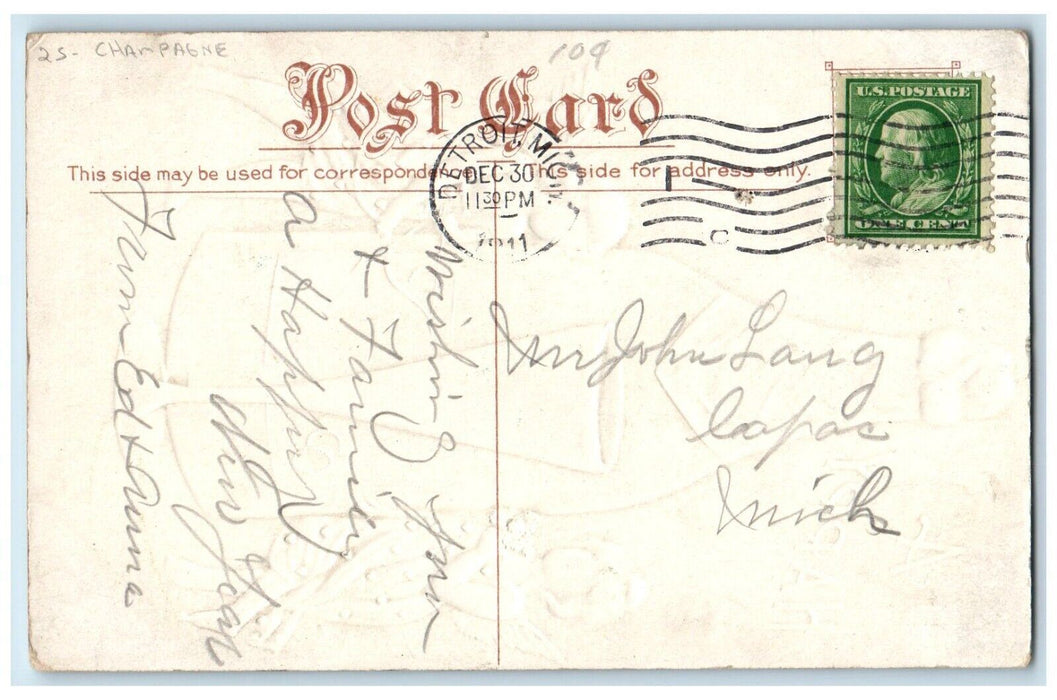 25- CHAMPAGNE
109
Post Card
This side may be used for correspondence
This side for address only.
DETROIT, MICH.
DEC 30
11 30 PM
1911
U.S. POSTAGE
ONE CENT
Wishing you
& Family
a Happy
New Year
From Ed & Anna
Mr John Lang
Capac
Mich